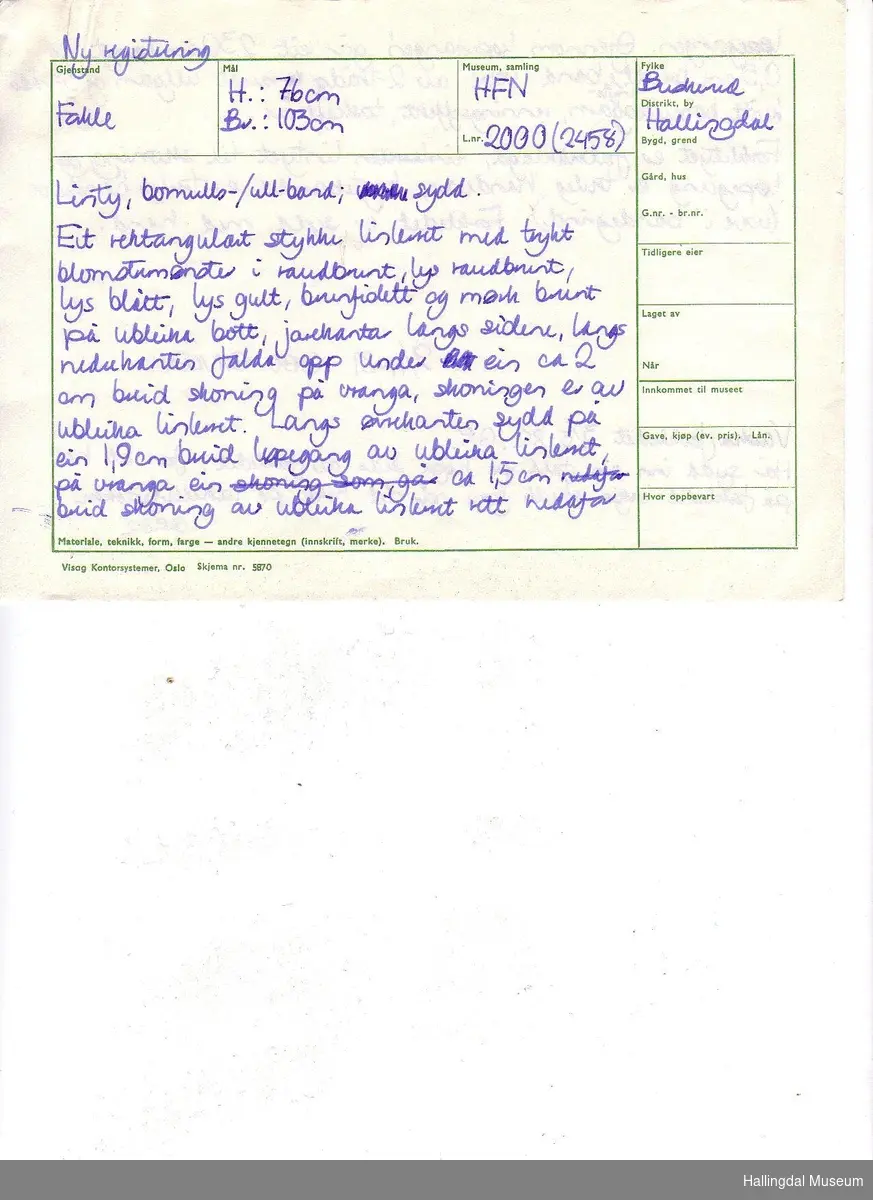 Ny registrering
Gjenstand
Fakle
Mål
H.: 76cm
Br.: 103cm
Museum, samling
HFN
L.nr. 2000 (2458)
Fylke
Buskerud
Distrikt, by
Hallingdal
Bygd, grend
Gård, hus
G.nr. - br.nr.
Tidligere eier
Laget av
Når
Innkommet til museet
Gave, kjøp (ev. pris). Lån.
Hvor oppbevart
Linty, bomulls-/ull-band; sydd.
Eit rektangulært stykke linlerret med trykt
blomstermønster i raudbrunt, lys raudbrunt,
lys blått, lys gult, brunfiolett og mørk brunt
på ubleika bott, jarekantar langs sidene, langs
nedrekanten falda opp under ein ca 2
cm breid skoning på vranga, skoningen er av
ubleika linlerret. Langs øvrekanten sydd på
ein 1,9 cm breid løpegang av ubleika linlerret,
på vranga ein skoning som går ca 1,5 cm nedafor
breid skoning av ubleika linlerret rett nedafor
Materiale, teknikk, form, farge — andre kjennetegn (innskrift, merke). Bruk.
Visag Kontorsystemer, Oslo Skjema nr. 5870
Hallingdal Museum